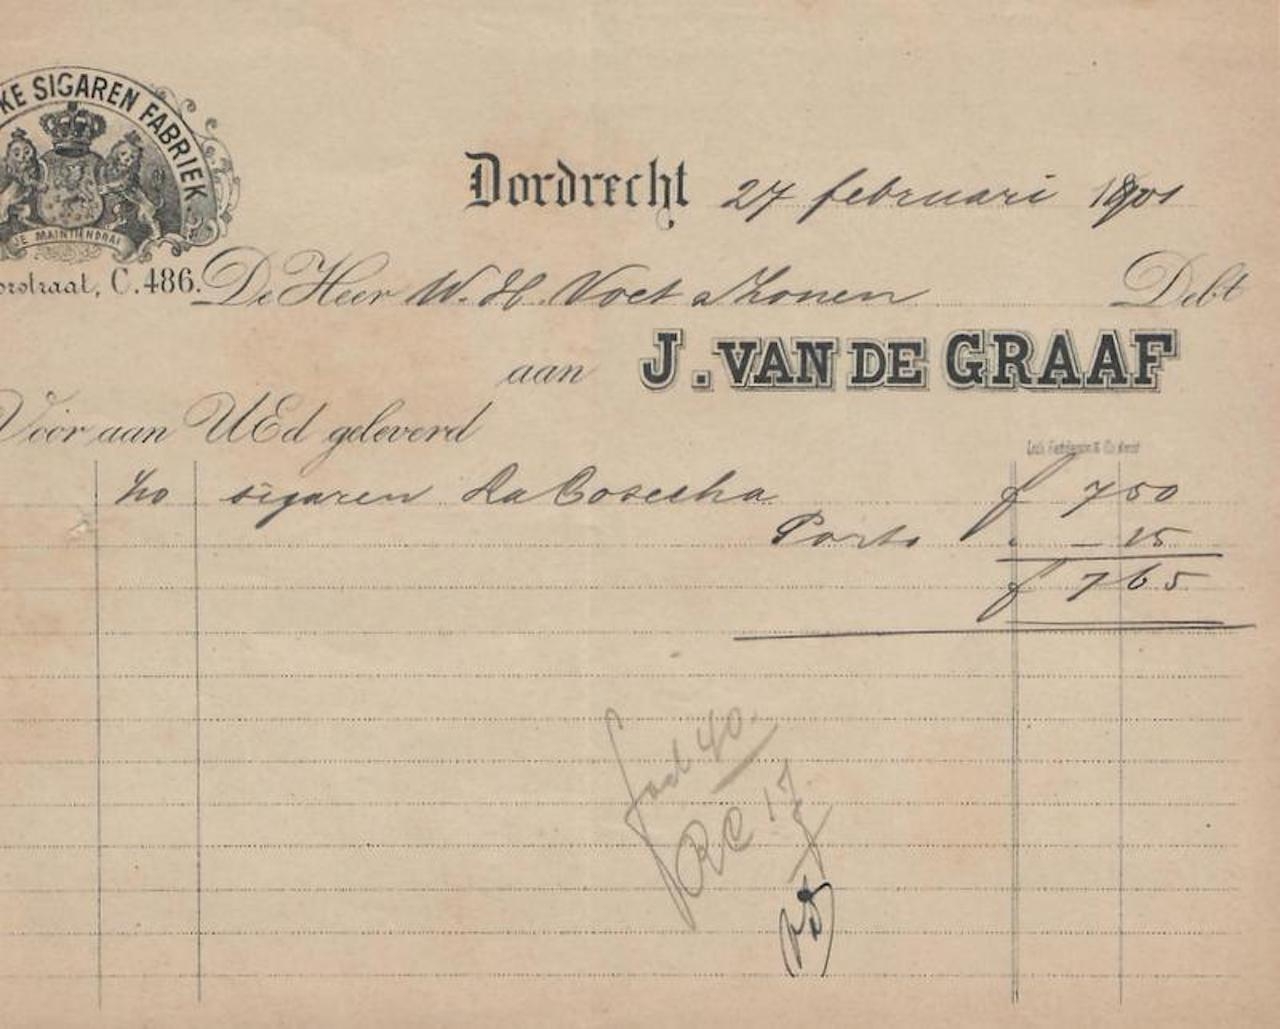 KE SIGAREN FABRIEK
JE MAINTIENDRAI
Dordrecht 27 februari 1901
orstraat, C. 486. De Heer W. H. Voet & Zonen Debt
aan J. VAN DE GRAAF
Voor aan UEd geleverd
1/20 sigaren La Cosecha f 7 50
Porto " — 15
f 7 65
fad 40.
RC 17